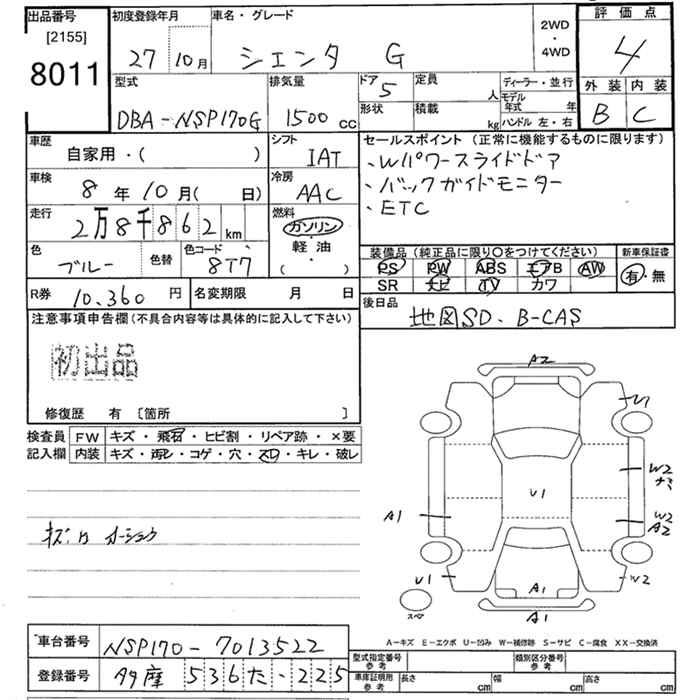 出品番号 [2155] 8011
初度登録年月 27年10月
車名・グレード シエンタ G
2WD・4WD
評価点 4
外装 B 内装 C
型式 DBA-NSP170G
排気量 1500cc
ドア 5
形状
定員 人
積載 kg
ディーラー・並行
モデル年式 年
ハンドル 左・右
車歴 自家用・( )
シフト IAT
車検 8年10月( 日)
冷房 AAC
走行 2万8千862km
燃料 ガソリン 軽油 ( ・ )
色 ブルー 色替 色コード 8T7
R券 10,360円
名変期限 月 日
セールスポイント(正常に機能するものに限ります)
・Wパワースライドドア
・バックガイドモニター
・ETC
装備品(純正品に限り○をつけてください)
PS PW ABS エアB AW
SR ナビ TV カワ
新車保証書 有・無
後日品 地図SD、B-CAS
注意事項申告欄(不具合内容等は具体的に記入して下さい)
初出品
修復歴 有 [箇所 ]
検査員記入欄
FW キズ・飛石・ヒビ割・リペア跡・×要
内装 キズ・汚レ・コゲ・穴・スレ・キレ・破レ
A2
U1
W2
U1
A1
W2
A2
U1
A1
W2
スペア
A1
A-キズ E-エクボ U-凹み W-補修跡 S-サビ C-腐食 XX-交換済
車台番号 NSP170-7013522
登録番号 536た・225
型式指定番号 参考
類別区分番号 参考
車庫証明用 参考 長さ cm 幅 cm 高さ cm